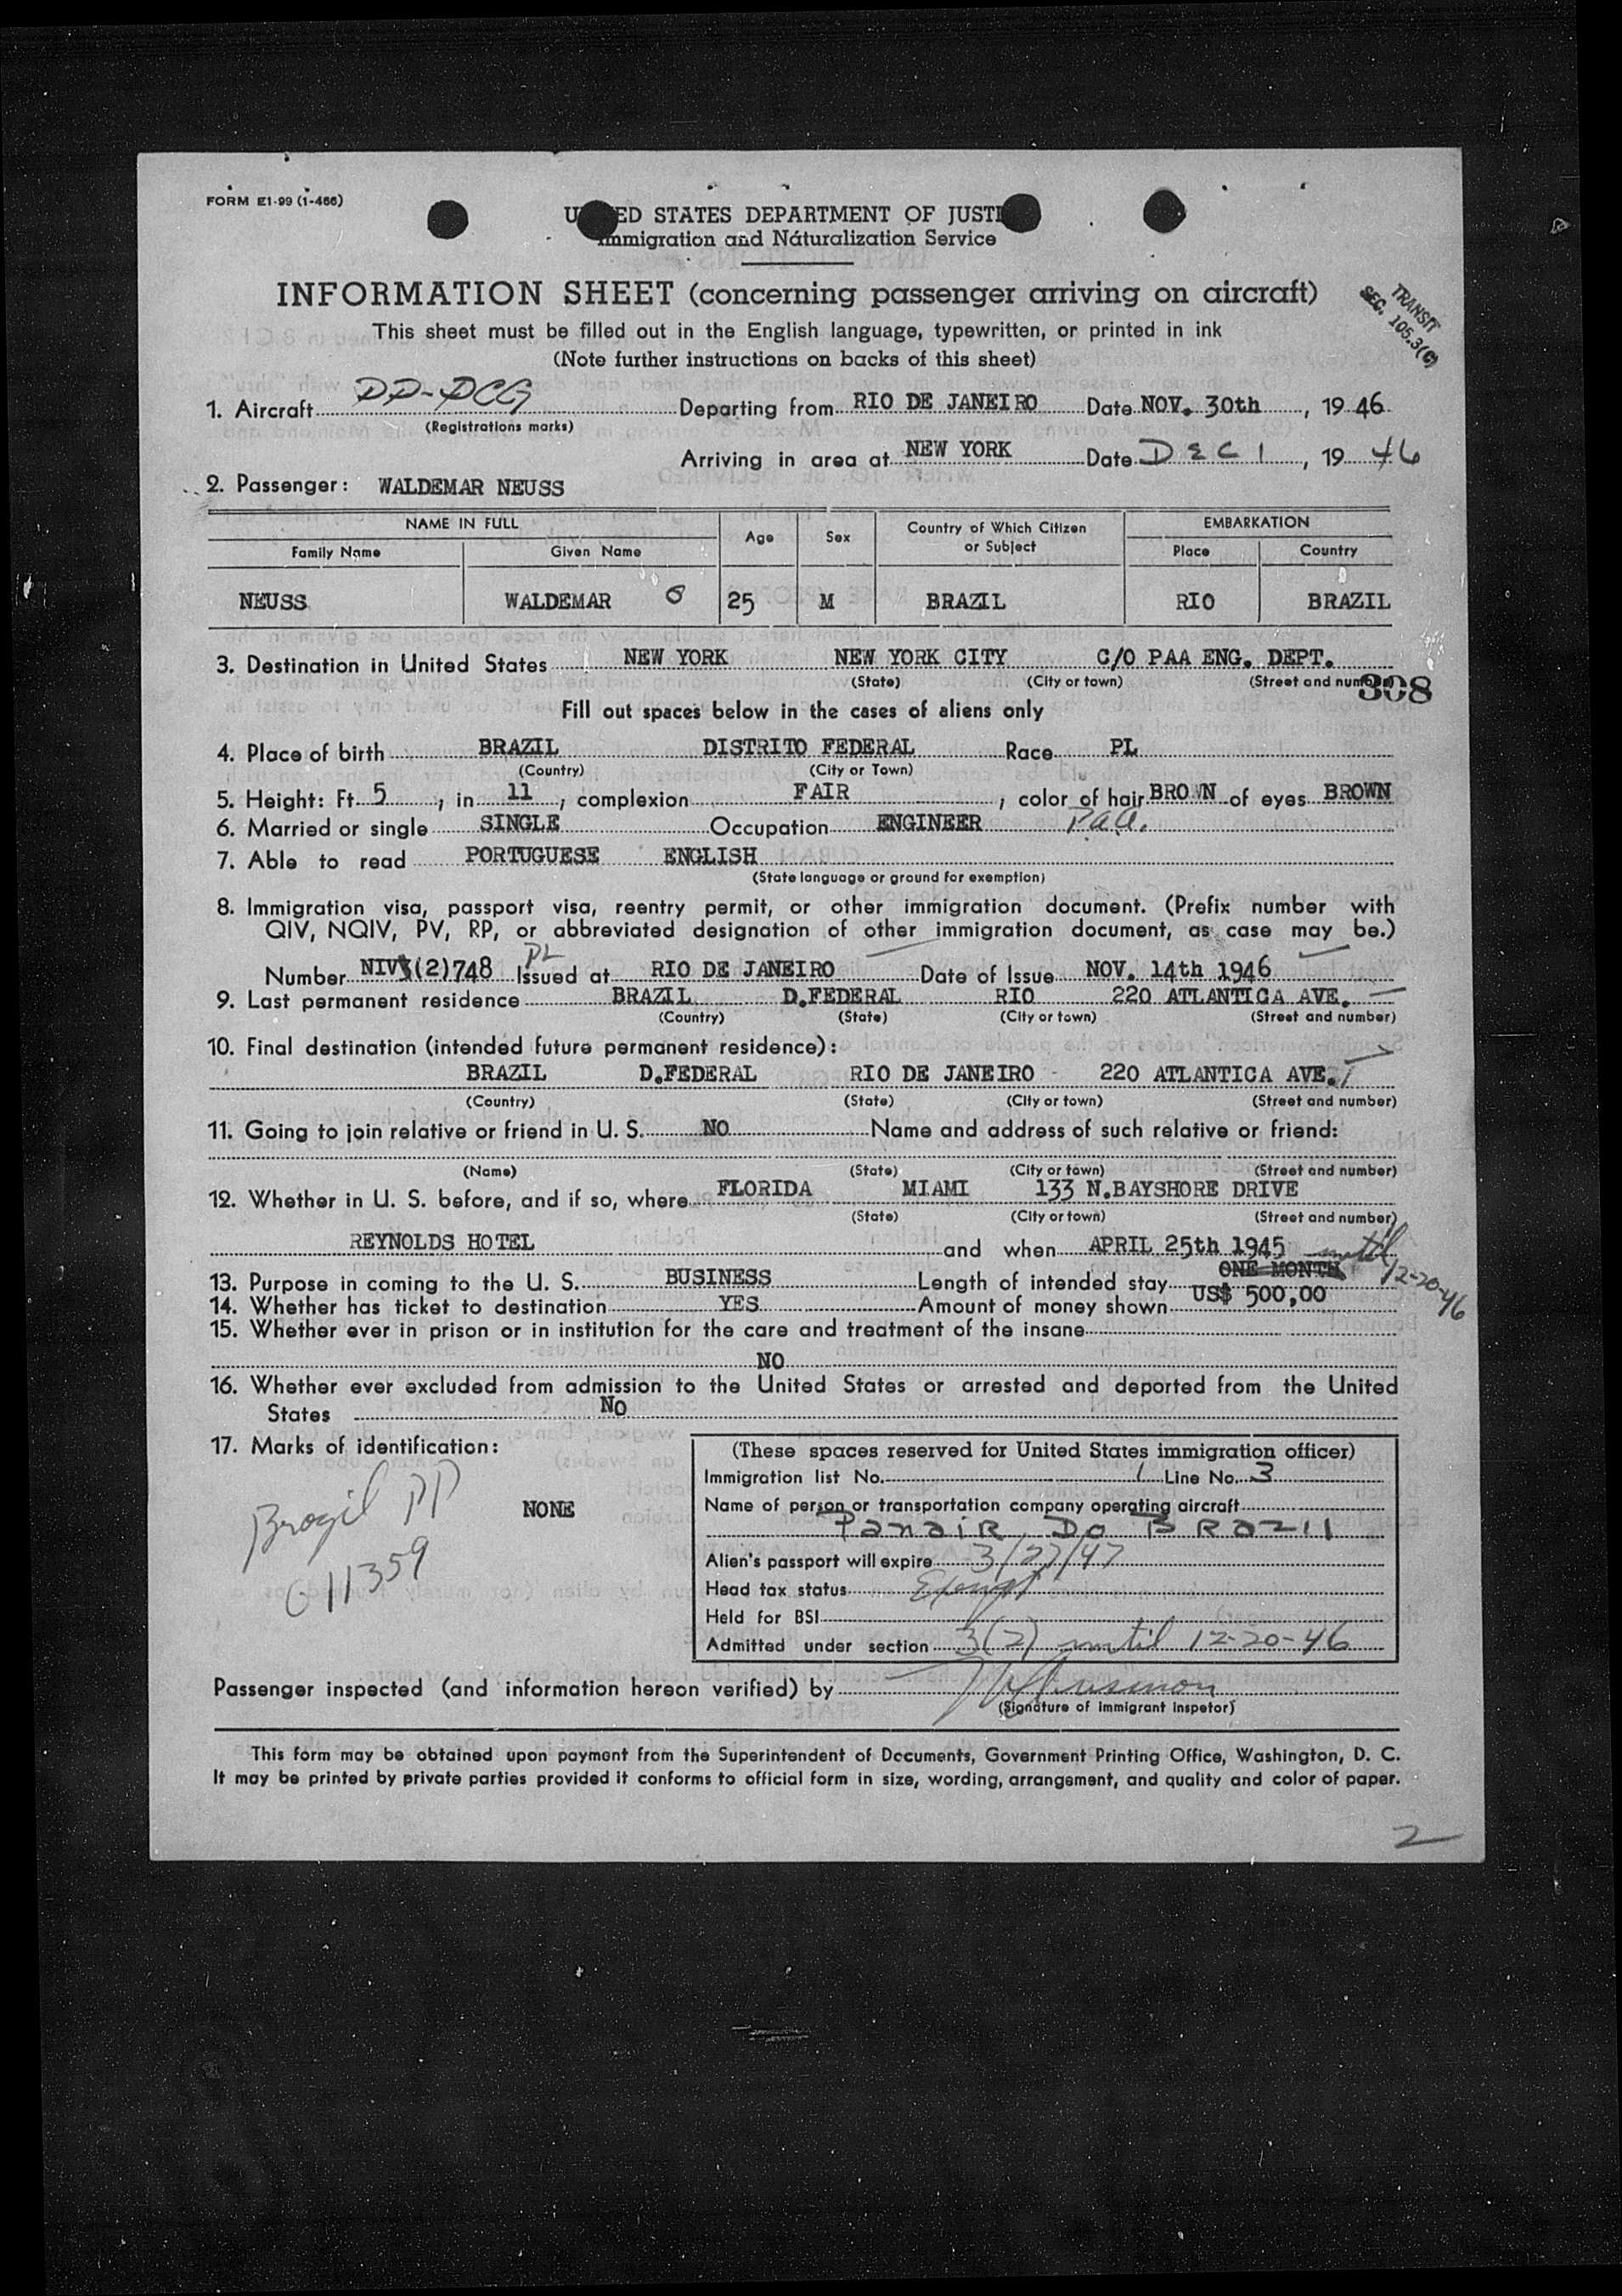 FORM E1-99 (1-466)
U ED STATES DEPARTMENT OF JUSTI
Immigration and Naturalization Service
INFORMATION SHEET (concerning passenger arriving on aircraft)
TRANSIT
SEC. 105.3(C)
This sheet must be filled out in the English language, typewritten, or printed in ink
(Note further instructions on backs of this sheet)
1. Aircraft PP-PCG Departing from RIO DE JANEIRO Date NOV. 30th, 19 46
(Registrations marks)
Arriving in area at NEW YORK Date DEC 1, 19 46
2. Passenger: WALDEMAR NEUSS
NAME IN FULL Age Sex Country of Which Citizen or Subject EMBARKATION
Family Name Given Name Place Country
NEUSS WALDEMAR 25 M BRAZIL RIO BRAZIL
3. Destination in United States NEW YORK NEW YORK CITY C/O PAA ENG. DEPT.
(State) (City or town) (Street and number)
308
Fill out spaces below in the cases of aliens only
4. Place of birth BRAZIL DISTRITO FEDERAL Race PL
(Country) (City or Town)
5. Height: Ft. 5, in 11, complexion FAIR, color of hair BROWN of eyes BROWN
6. Married or single SINGLE Occupation ENGINEER P.a.a.
7. Able to read PORTUGUESE ENGLISH
(State language or ground for exemption)
8. Immigration visa, passport visa, reentry permit, or other immigration document. (Prefix number with
QIV, NQIV, PV, RP, or abbreviated designation of other immigration document, as case may be.)
PL
Number NIV (2)748 Issued at RIO DE JANEIRO Date of Issue NOV. 14th 1946
9. Last permanent residence BRAZIL D.FEDERAL RIO 220 ATLANTICA AVE.
(Country) (State) (City or town) (Street and number)
10. Final destination (intended future permanent residence):
BRAZIL D.FEDERAL RIO DE JANEIRO - 220 ATLANTICA AVE.
(Country) (State) (City or town) (Street and number)
11. Going to join relative or friend in U. S. NO Name and address of such relative or friend:
(Name) (State) (City or town) (Street and number)
12. Whether in U. S. before, and if so, where FLORIDA MIAMI 133 N.BAYSHORE DRIVE
(State) (City or town) (Street and number)
REYNOLDS HOTEL and when APRIL 25th 1945 until
12-20-46
13. Purpose in coming to the U. S. BUSINESS Length of intended stay ONE MONTH
14. Whether has ticket to destination YES Amount of money shown US$ 500,00
15. Whether ever in prison or in institution for the care and treatment of the insane
NO
16. Whether ever excluded from admission to the United States or arrested and deported from the United
States NO
17. Marks of identification:
NONE
Brazil PP
011359
(These spaces reserved for United States immigration officer)
Immigration list No. 1 Line No. 3
Name of person or transportation company operating aircraft
Panair Do Brazil
Alien's passport will expire 3/27/47
Head tax status Exempt
Held for BSI
Admitted under section 3(2) until 12-20-46
Passenger inspected (and information hereon verified) by
(Signature of immigrant inspetor)
This form may be obtained upon payment from the Superintendent of Documents, Government Printing Office, Washington, D. C.
It may be printed by private parties provided it conforms to official form in size, wording, arrangement, and quality and color of paper.
2